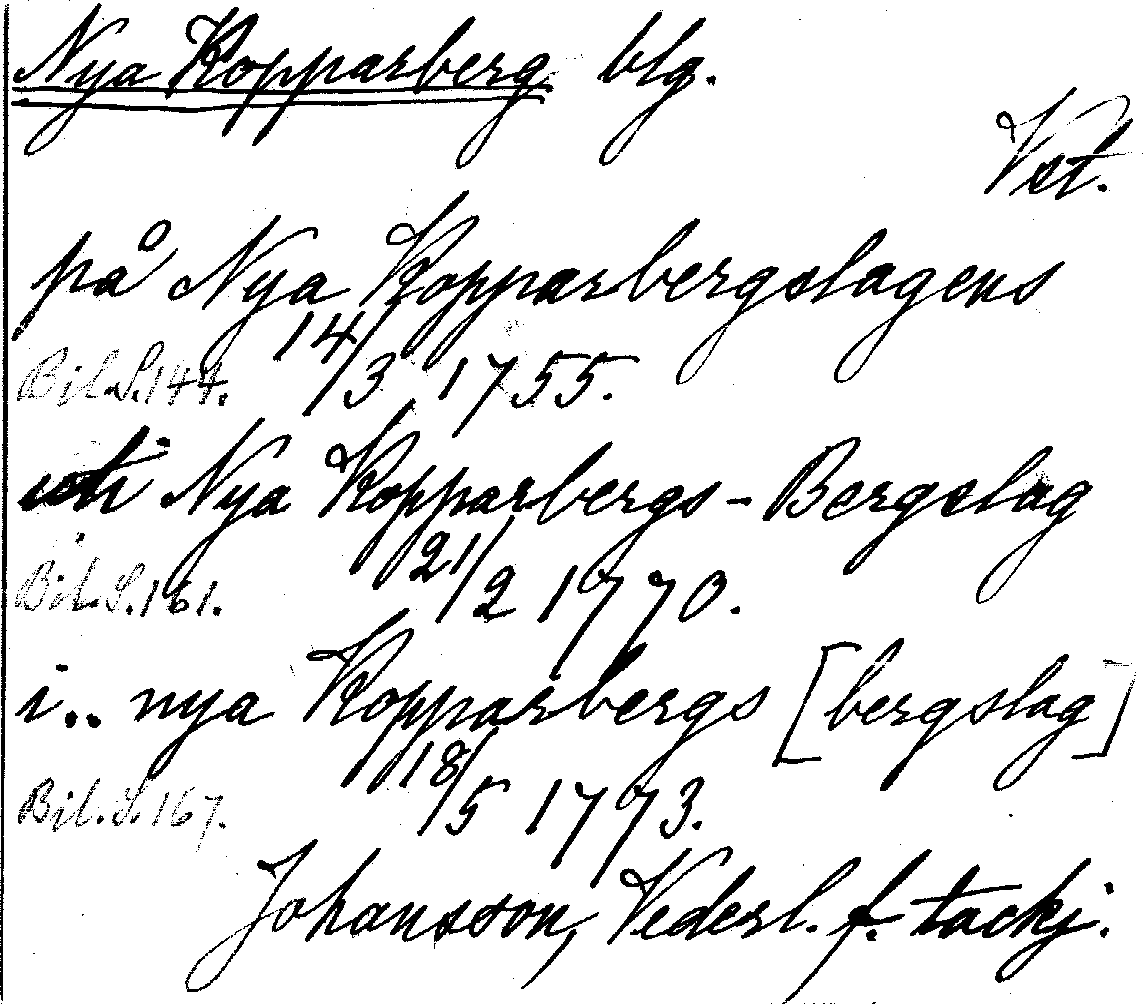 Nya Kopparberg blg.
Vst.
på Nya Kopparbergslagens
Bil. S. 144. 14/3 1755.
uti Nya Kopparbergs-Bergslag
Bil. S. 161. 21/2 1770.
i.. nya Kopparbergs [bergslag]
Bil. S. 167. 18/5 1773.
Johansson, Vederl. f. tackj.